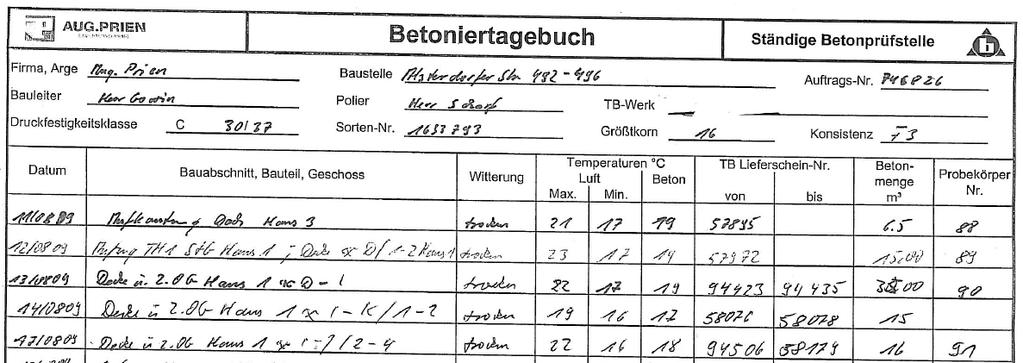 AUG.PRIEN Betoniertagebuch Ständige Betonprüfstelle
Firma, Arge Aug. Prien Baustelle Alsterdorfer Str. 492-496 Auftrags-Nr. 746826
Bauleiter Herr Polier Herr Scharf TB-Werk —
Druckfestigkeitsklasse C 30/37 Sorten-Nr. 1633793 Größtkorn 16 Konsistenz F3
Datum Bauabschnitt, Bauteil, Geschoss Witterung Temperaturen °C TB Lieferschein-Nr. Beton-menge m³ Probekörper Nr.
Luft Beton von bis
Max. Min.
11/08 09 Aufkantung Dach Haus 3 trocken 21 17 19 57895 6.5 88
12/08 09 TH1 Haus 1 ; Decke D/1-2 Haus 1 trocken 23 17 19 57972 15,00 89
13/08 09 Decke ü. 2.OG Haus 1 D-I trocken 22 17 19 94423 94435 90
14/08 09 Decke ü 2.OG Haus 1 I-K/1-2 trocken 19 16 17 58076 58078 15
17/08 09 Decke ü 2.OG Haus 1 /2-4 trocken 22 16 18 94506 58179 16 91